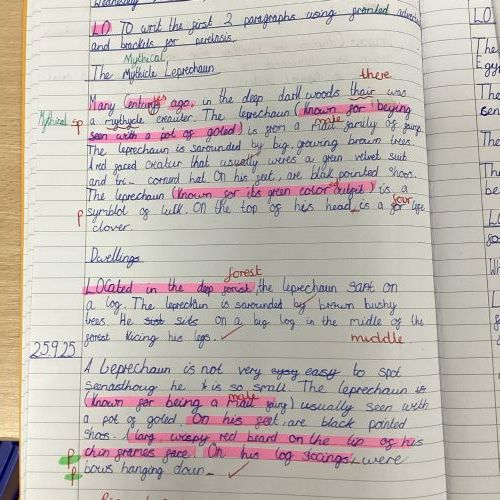 Wednesday
LO TO writ the first 2 paragraphs using fronted adver
and brackits for perthasis.
Mythical
The Mythicle Leprechaun
there
Many Centurys ies ago, in the deep dark woods thair was
Mythical sp
a mythycle creuiter. The leprechaun (known for beying
seen with a pot of goled) is from a mail male family of fairys.
The leprechaun is sarounded by big, growing brown trees.
A red faced creatur that usualy weres a green velvet suit
and tri- cornerd hat. On his feet, are blak pointed shoes.
The leprechaun (known for its green color outfit) is a
four
p
symblol of luck. On the top of his head, is a for lefe
clover.
Dwellings
forest
LOCated in the deep forrist, the leprechaun sant on
a log. The leprechaun is sarounded by brown bushy
trees. He sist sits on a big log in the midle of the
forest kicing his legs.
muddle
25.9.25
A Leprechaun is not very easy to spot
seonasthoug he is so small. The leprechaun is
male
(known for being a mail fairy) usually seen with
a pot of goled. On his feet, are black pointed
shoes. A larg, wrispy red beard on the tip of his
p
chin frames face. On his log stocings, were
p
bows hanging doun.
LO
The
Egy
The
The
The
be
LO